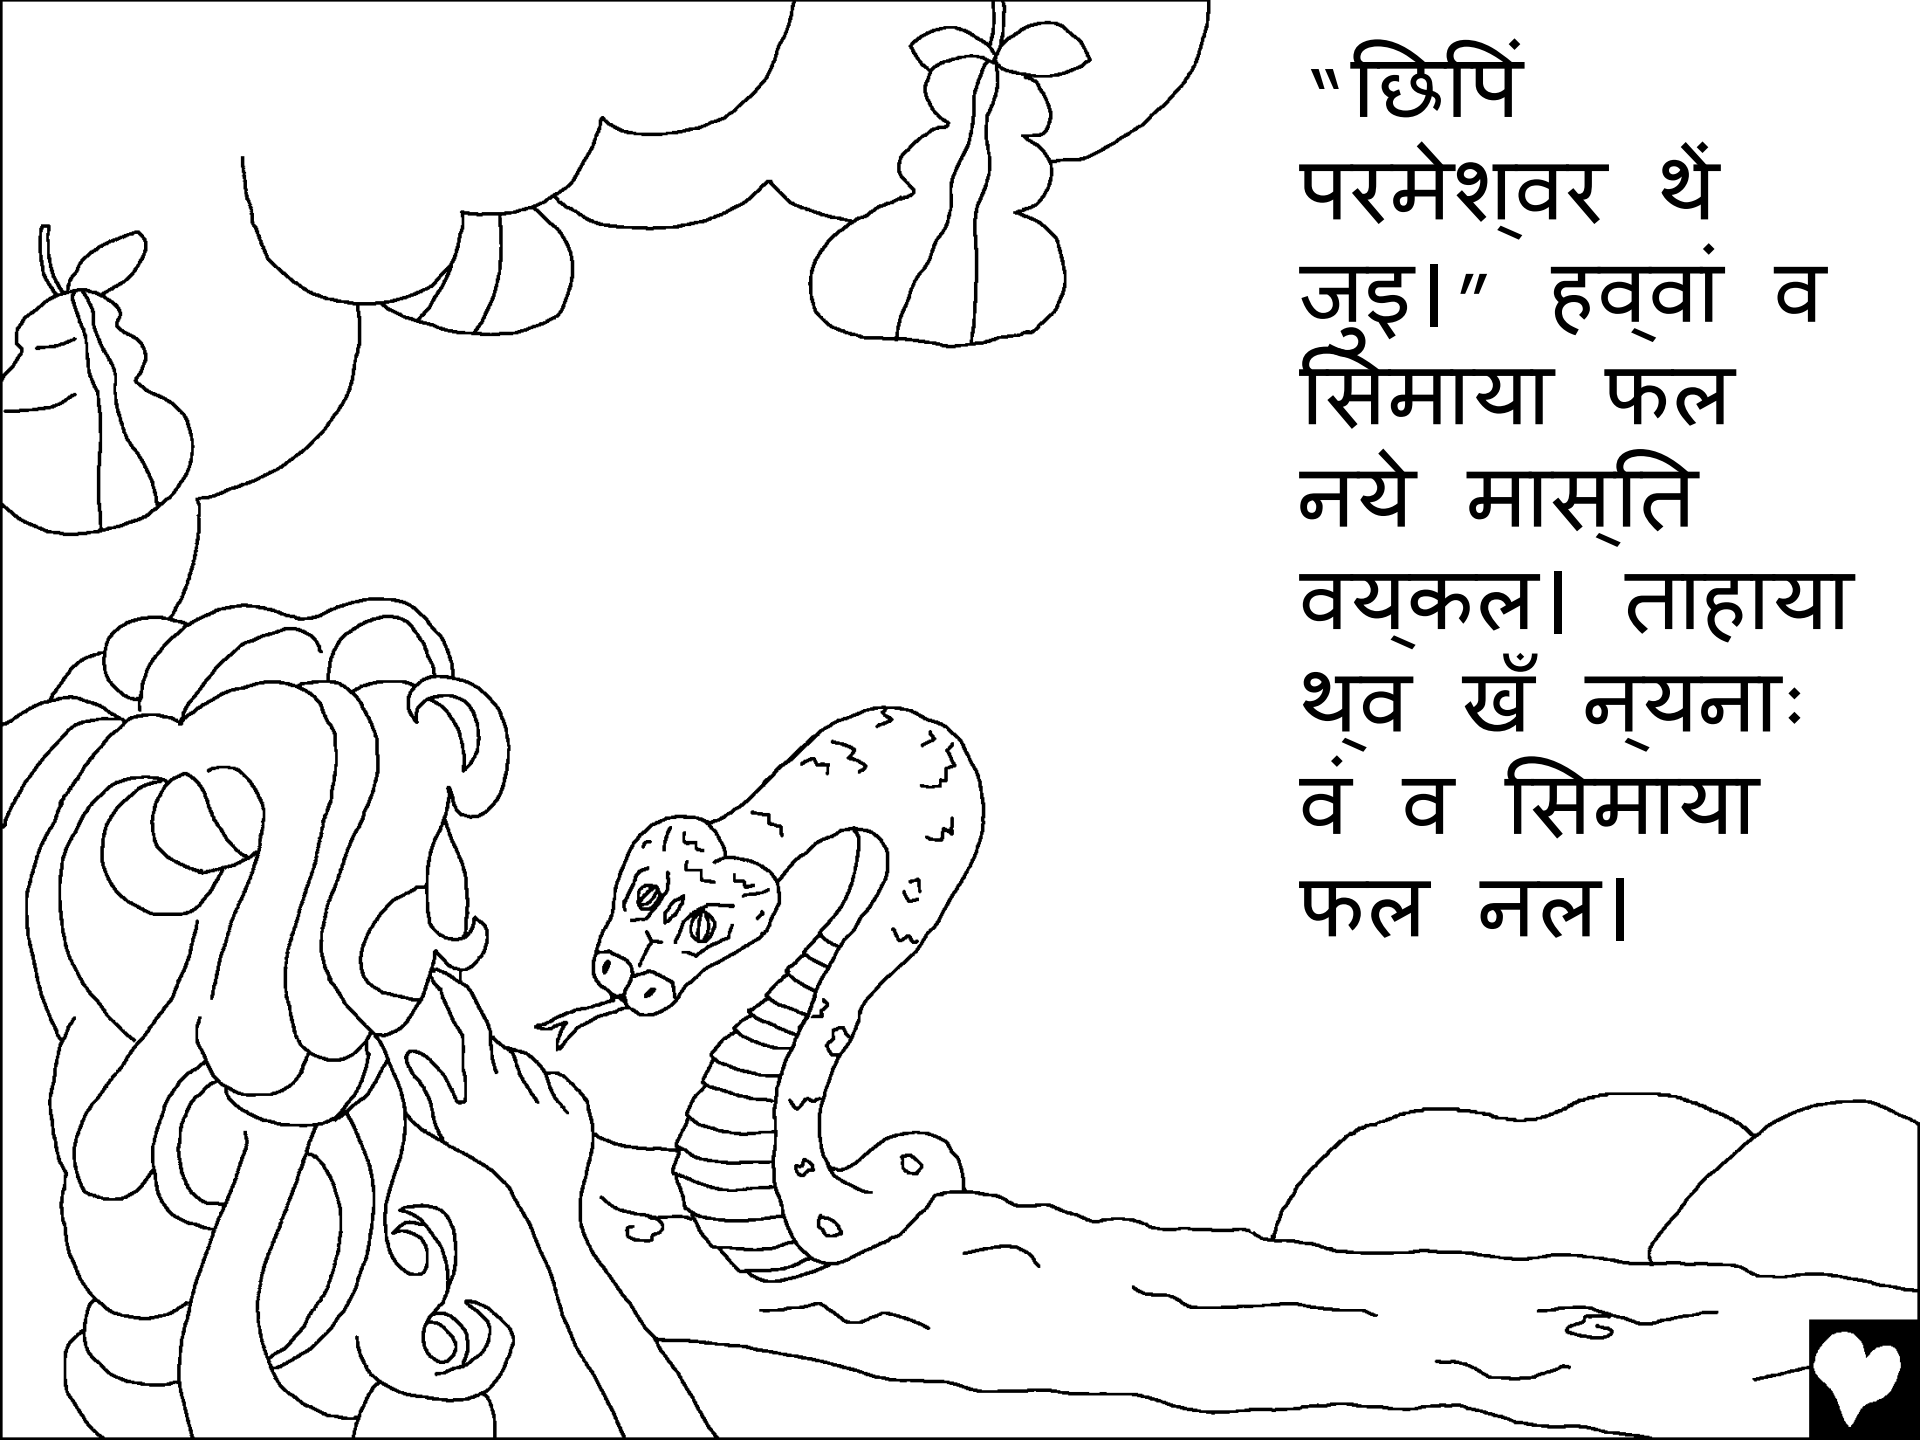 “छिपिं
परमेश्वर थें
जुइ।” हव्वां व
सिमाया फल
नये मास्ति
वय्कल। ताहाया
थ्व खँ न्यनाः
वं व सिमाया
फल नल।